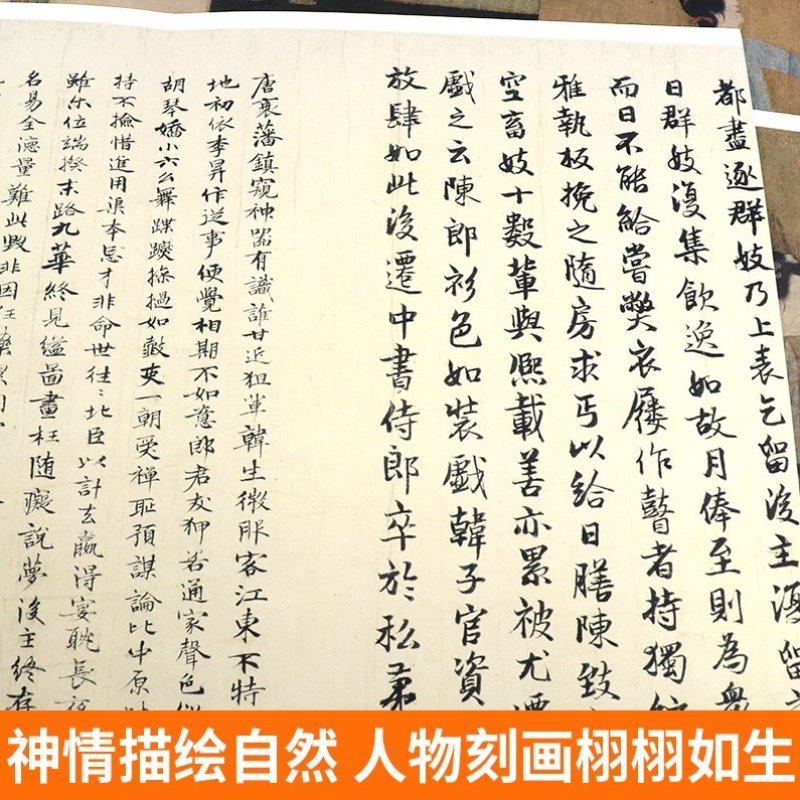 都盡逐群妓乃上表乞留後主復留
日群妓復集飲逸如故月俸至則為衆
而日不能給嘗弊衣屨作瞽者持獨絃
雅執板挽之隨房求丐以給日膳陳致
空畜妓十數輩與熙載善亦累被尤
戲之云陳郎衫色如裝戲韓子官資
放肆如此後遷中書侍郎卒於私第
唐衰藩鎮窺神器有識誰甘近狙軰韓生微服客江東不特
地初依李昇作從事便覺相期不如意郎君友狎若通家聲色
胡琴嬌小六幺舞蹀躞摻撾如鼓吏一朝受禪耻預謀論比中原
持不撿惜進用渠本忌才非命世往〻北臣以計去贏得宴眺長
雖卒位端揆末路九華終見縊圖畫枉随癡說夢後主終存
名易全德量難此
神情描绘自然 人物刻画栩栩如生